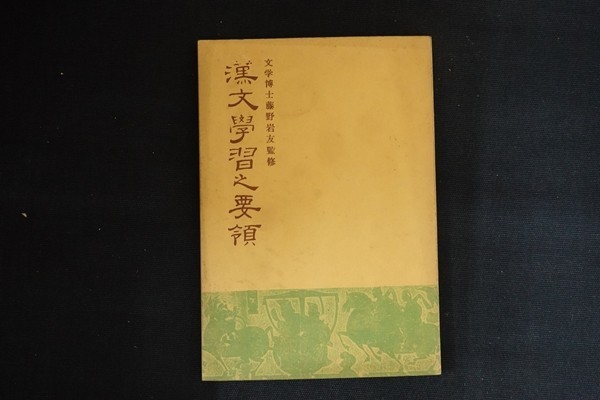 文学博士藤野岩友監修
漢文學習之要領